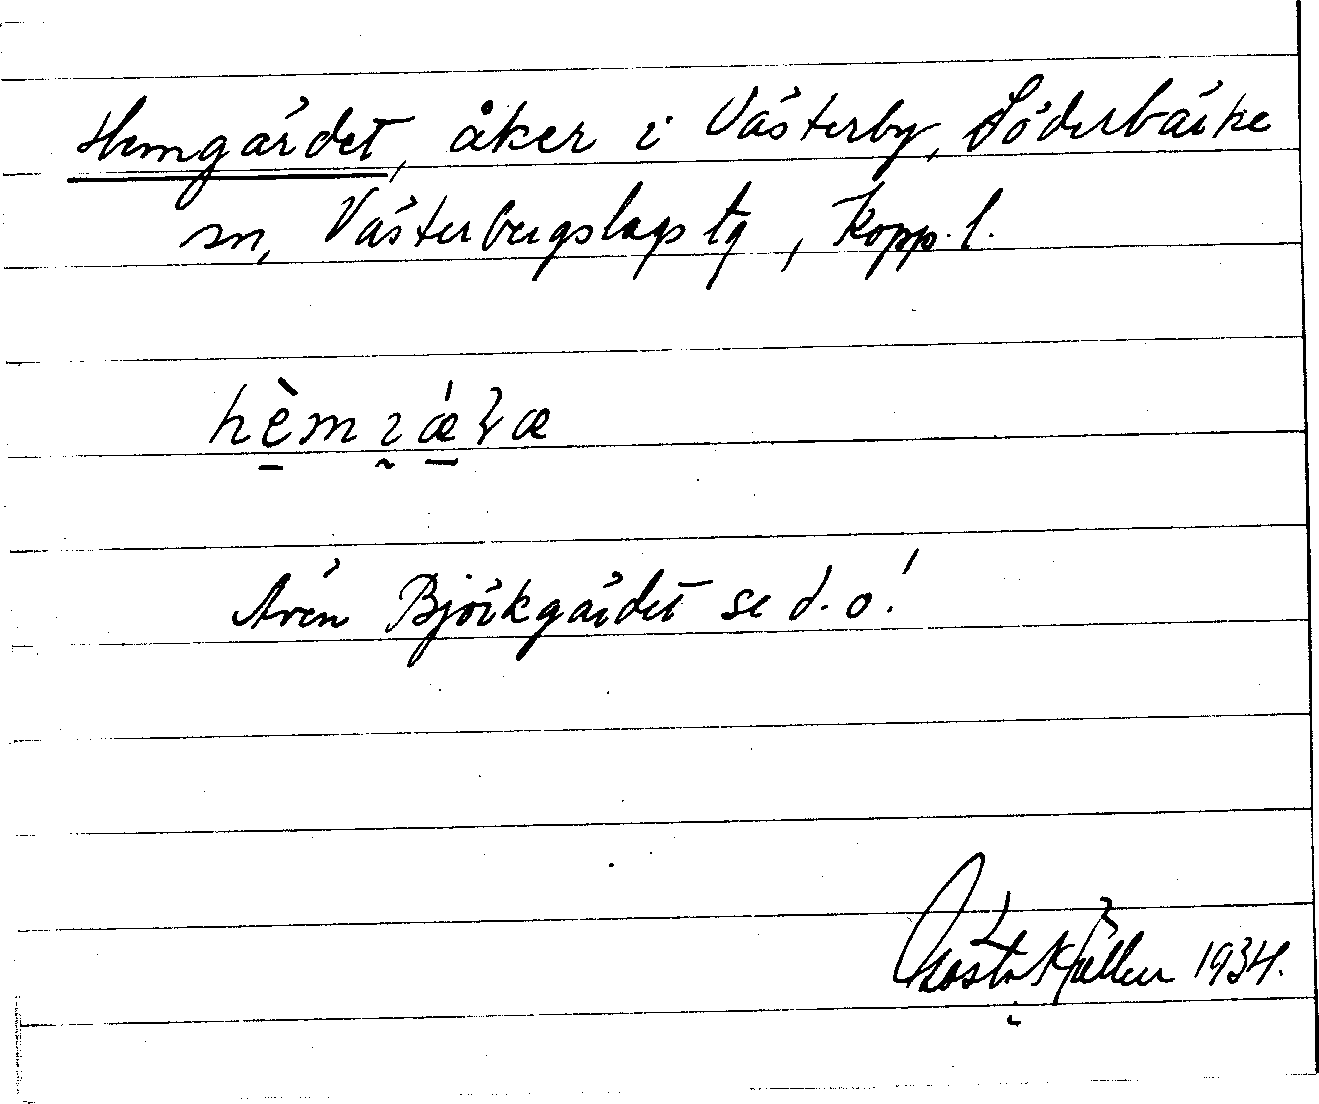 Hemgärdet, åker i Västerby, Söderbärke
sn, Västerbergslags tg, Kopp. l.
Även Björkgärdet se d. o!
Gösta Källen 1934.